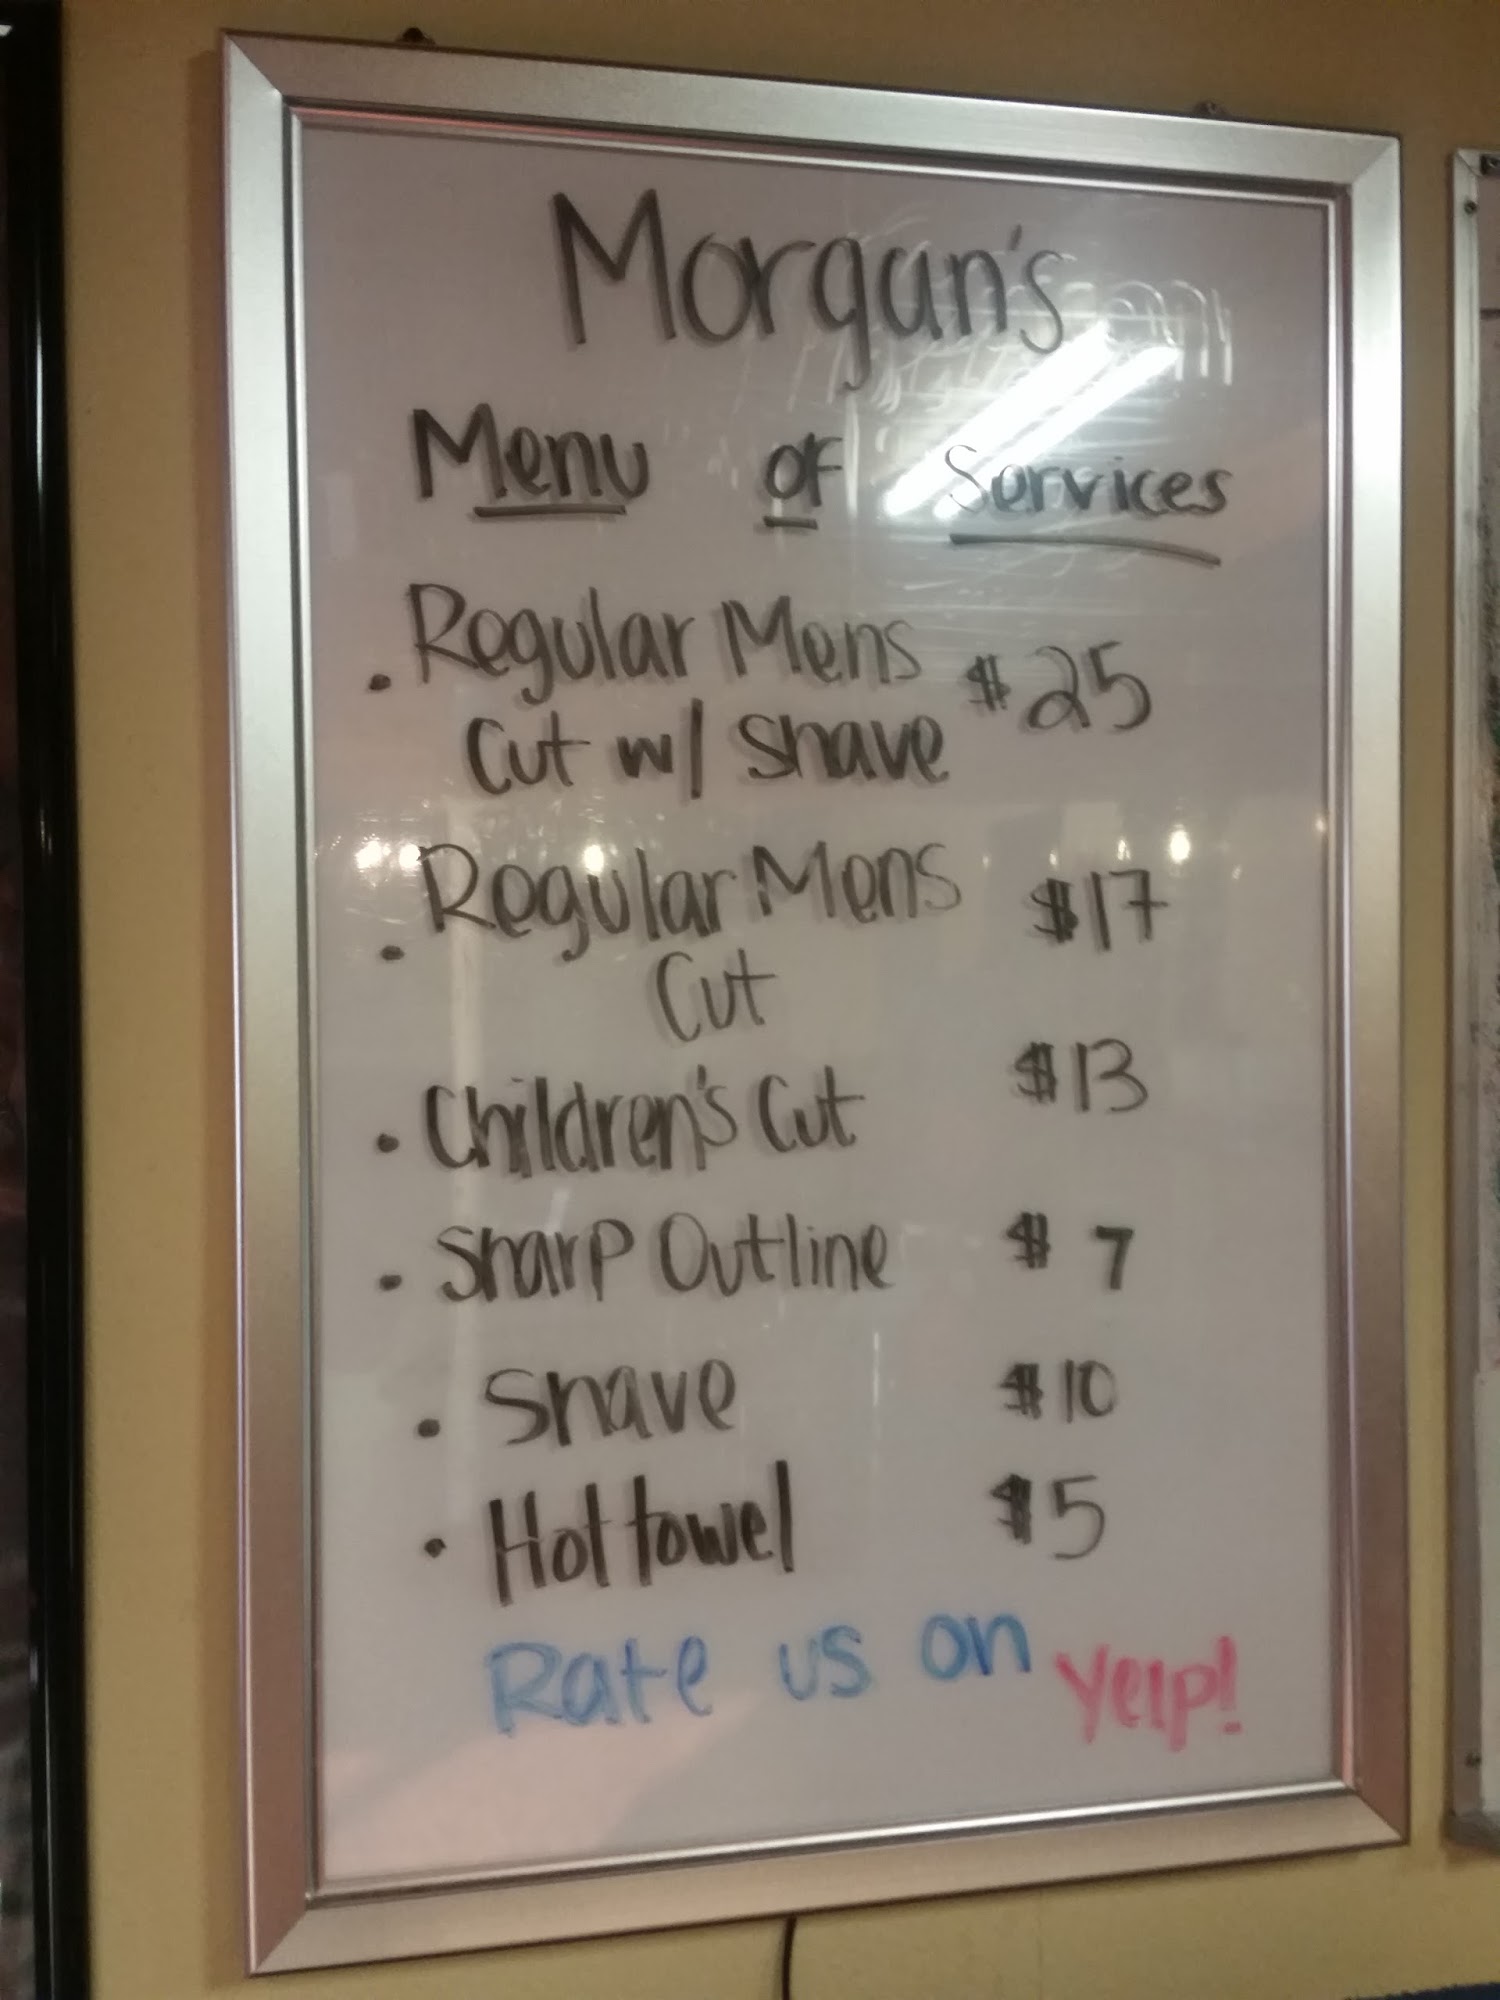 Morgan's
Menu of Services
• Regular Mens $25
Cut w/ Shave
• Regular Mens $17
Cut
• Children's Cut $13
• Sharp Outline $7
• Shave $10
• Hot towel $5
Rate us on Yelp!